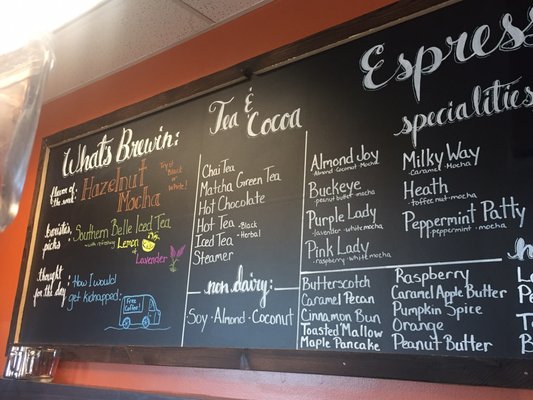 What's Brewin:
flavor of the week:
Hazelnut Mocha
Try it Black or White!
Barista's picks:
Southern Belle Iced Tea
with refreshing Lemon &
Lavender
thought for the day
"How I would get kidnapped:"
Free Coffee
Tea & Cocoa
Chai Tea
Matcha Green Tea
Hot Chocolate
Hot Tea -Black
Iced Tea -Herbal
Steamer
non. dairy:
Soy · Almond · Coconut
Espress
specialities
Almond Joy
Almond Coconut Mocha
Buckeye
-peanut butter mocha
Purple Lady
-lavender white mocha
Pink Lady
-raspberry white mocha
Milky Way
-Caramel Mocha
Heath
-toffee nut mocha
Peppermint Patty
-peppermint mocha
Butterscotch
Caramel Pecan
Cinnamon Bun
Toasted Mallow
Maple Pancake
Raspberry
Caramel Apple Butter
Pumpkin Spice
Orange
Peanut Butter